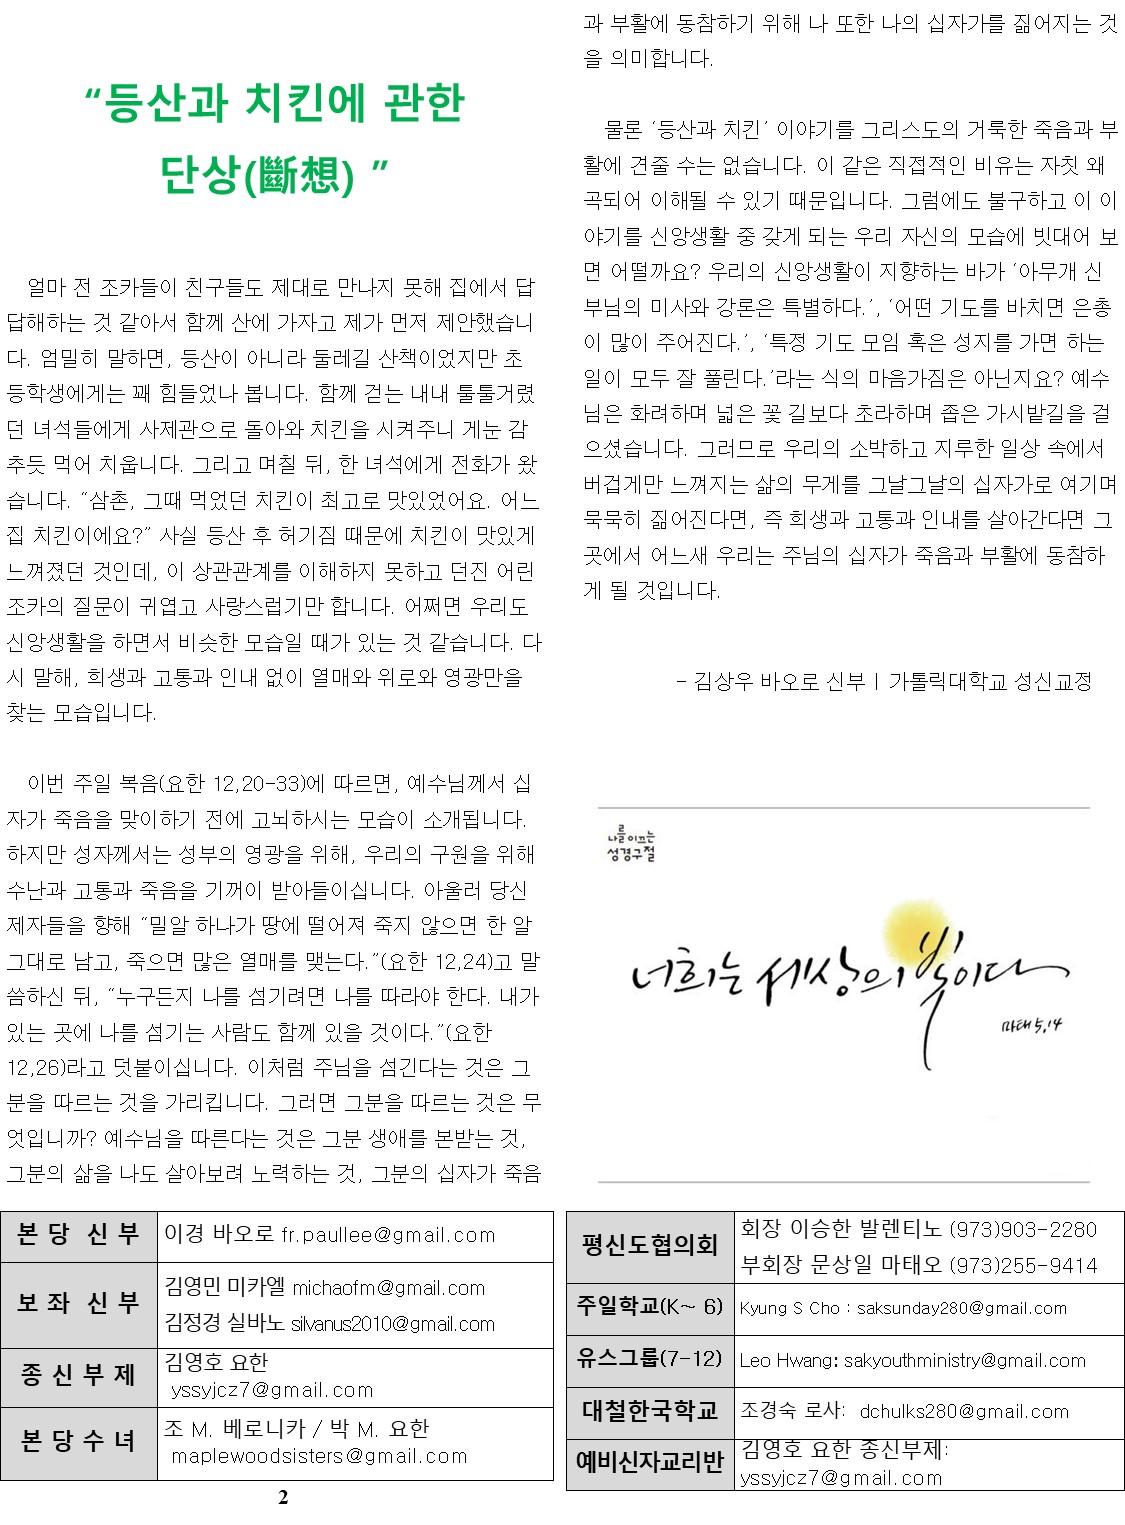 “등산과 치킨에 관한
단상(斷想) ”
얼마 전 조카들이 친구들도 제대로 만나지 못해 집에서 답
답해하는 것 같아서 함께 산에 가자고 제가 먼저 제안했습니
다. 엄밀히 말하면, 등산이 아니라 둘레길 산책이었지만 초
등학생에게는 꽤 힘들었나 봅니다. 함께 걷는 내내 툴툴거렸
던 녀석들에게 사제관으로 돌아와 치킨을 시켜주니 게눈 감
추듯 먹어 치웁니다. 그리고 며칠 뒤, 한 녀석에게 전화가 왔
습니다. “삼촌, 그때 먹었던 치킨이 최고로 맛있었어요. 어느
집 치킨이에요?” 사실 등산 후 허기짐 때문에 치킨이 맛있게
느껴졌던 것인데, 이 상관관계를 이해하지 못하고 던진 어린
조카의 질문이 귀엽고 사랑스럽기만 합니다. 어쩌면 우리도
신앙생활을 하면서 비슷한 모습일 때가 있는 것 같습니다. 다
시 말해, 희생과 고통과 인내 없이 열매와 위로와 영광만을
찾는 모습입니다.
이번 주일 복음(요한 12,20-33)에 따르면, 예수님께서 십
자가 죽음을 맞이하기 전에 고뇌하시는 모습이 소개됩니다.
하지만 성자께서는 성부의 영광을 위해, 우리의 구원을 위해
수난과 고통과 죽음을 기꺼이 받아들이십니다. 아울러 당신
제자들을 향해 “밀알 하나가 땅에 떨어져 죽지 않으면 한 알
그대로 남고, 죽으면 많은 열매를 맺는다.”(요한 12,24)고 말
씀하신 뒤, “누구든지 나를 섬기려면 나를 따라야 한다. 내가
있는 곳에 나를 섬기는 사람도 함께 있을 것이다.”(요한
12,26)라고 덧붙이십니다. 이처럼 주님을 섬긴다는 것은 그
분을 따르는 것을 가리킵니다. 그러면 그분을 따르는 것은 무
엇입니까? 예수님을 따른다는 것은 그분 생애를 본받는 것,
그분의 삶을 나도 살아보려 노력하는 것, 그분의 십자가 죽음
과 부활에 동참하기 위해 나 또한 나의 십자가를 짊어지는 것
을 의미합니다.
물론 ‘등산과 치킨’ 이야기를 그리스도의 거룩한 죽음과 부
활에 견줄 수는 없습니다. 이 같은 직접적인 비유는 자칫 왜
곡되어 이해될 수 있기 때문입니다. 그럼에도 불구하고 이 이
야기를 신앙생활 중 갖게 되는 우리 자신의 모습에 빗대어 보
면 어떨까요? 우리의 신앙생활이 지향하는 바가 ‘아무개 신
부님의 미사와 강론은 특별하다.’, ‘어떤 기도를 바치면 은총
이 많이 주어진다.’, ‘특정 기도 모임 혹은 성지를 가면 하는
일이 모두 잘 풀린다.’라는 식의 마음가짐은 아닌지요? 예수
님은 화려하며 넓은 꽃 길보다 초라하며 좁은 가시밭길을 걸
으셨습니다. 그러므로 우리의 소박하고 지루한 일상 속에서
버겁게만 느껴지는 삶의 무게를 그날그날의 십자가로 여기며
묵묵히 짊어진다면, 즉 희생과 고통과 인내를 살아간다면 그
곳에서 어느새 우리는 주님의 십자가 죽음과 부활에 동참하
게 될 것입니다.
- 김상우 바오로 신부 | 가톨릭대학교 성신교정
나를 이끄는
성경구절
너희는 세상의 빛이다
마태 5,14
본 당 신 부 이경 바오로 fr.paullee@gmail.com
보 좌 신 부 김영민 미카엘 michaofm@gmail.com
김정경 실바노 silvanus2010@gmail.com
종 신 부 제 김영호 요한
yssyjcz7@gmail.com
본 당 수 녀 조 M. 베로니카 / 박 M. 요한
maplewoodsisters@gmail.com
평신도협의회 회장 이승한 발렌티노 (973)903-2280
부회장 문상일 마태오 (973)255-9414
주일학교(K~ 6) Kyung S Cho : saksunday280@gmail.com
유스그룹(7-12) Leo Hwang: sakyouthministry@gmail.com
대철한국학교 조경숙 로사: dchulks280@gmail.com
예비신자교리반 김영호 요한 종신부제:
yssyjcz7@gmail.com
2